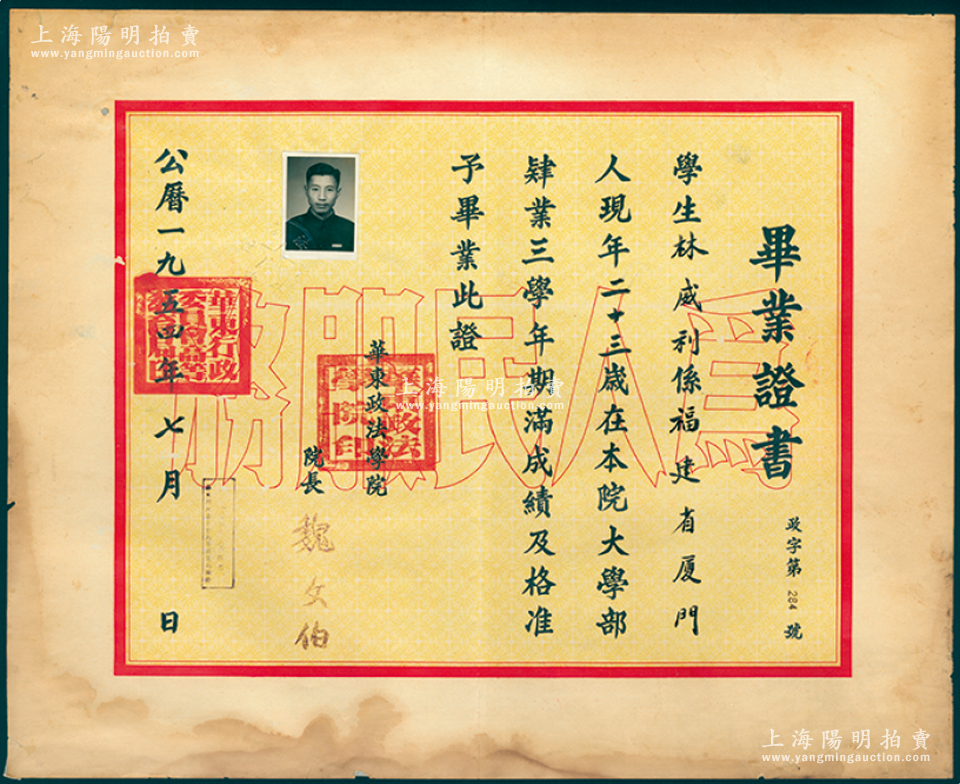 上海陽明拍賣
www.yangmingauction.com
上海陽明拍賣
www.yangmingauction.com
畢業證書
政字第284號
學生林威利係福建省厦門
人現年二十三歲在本院大學部
肄業三學年期滿成績及格准
予畢業此證
為人民服務
華東政法學院
院長
魏文伯
華東政法學院印
公曆一九五四年七月 日
華東行政委員會高等教育局印
上海陽明拍賣
www.yangmingauction.com